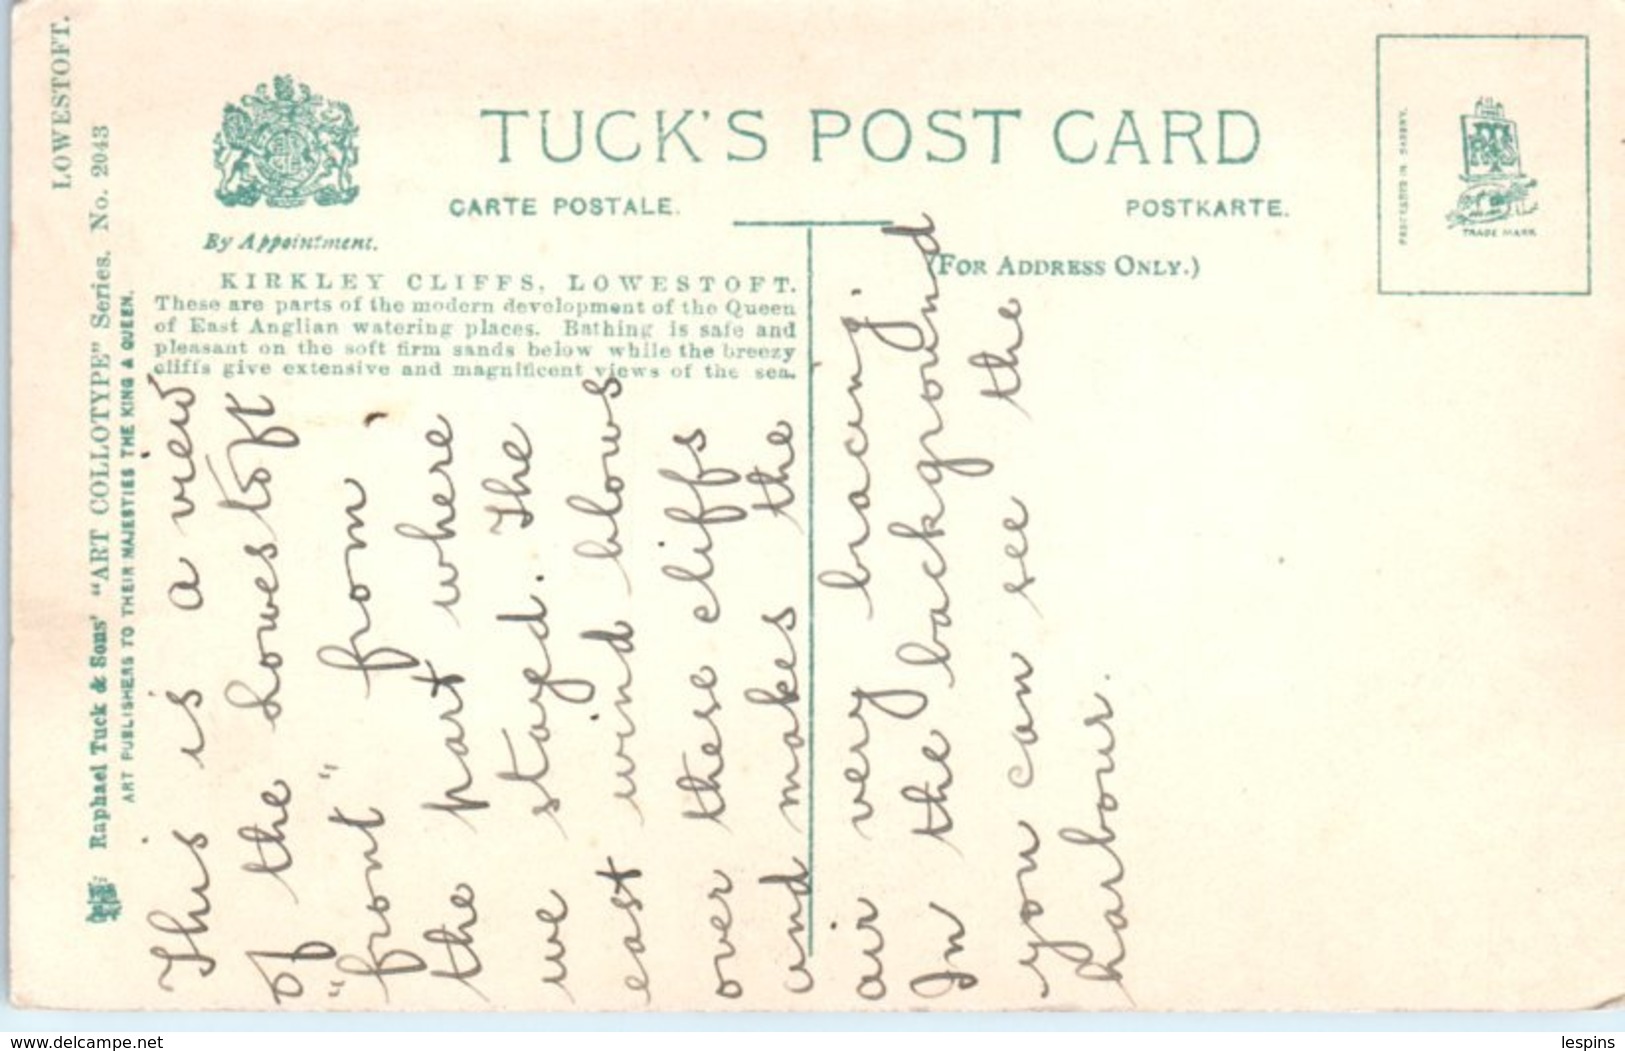 LOWESTOFT.
Raphael Tuck & Sons' "ART COLLOTYPE" Series. No. 2043
ART PUBLISHERS TO THEIR MAJESTIES THE KING & QUEEN.
By Appointment.
TUCK'S POST CARD
CARTE POSTALE.
POSTKARTE.
(FOR ADDRESS ONLY.)
PROCESSED IN SAXONY.
TRADE MARK
KIRKLEY CLIFFS, LOWESTOFT.
These are parts of the modern development of the Queen
of East Anglian watering places. Bathing is safe and
pleasant on the soft firm sands below while the breezy
cliffs give extensive and magnificent views of the sea.
This is a view
of the Lowestoft
"front" from
the part where
we stayed. The
east wind blows
over these cliffs
and makes the
air very bracing.
In the background
you can see the
harbour.
www.delcampe.net
lespins